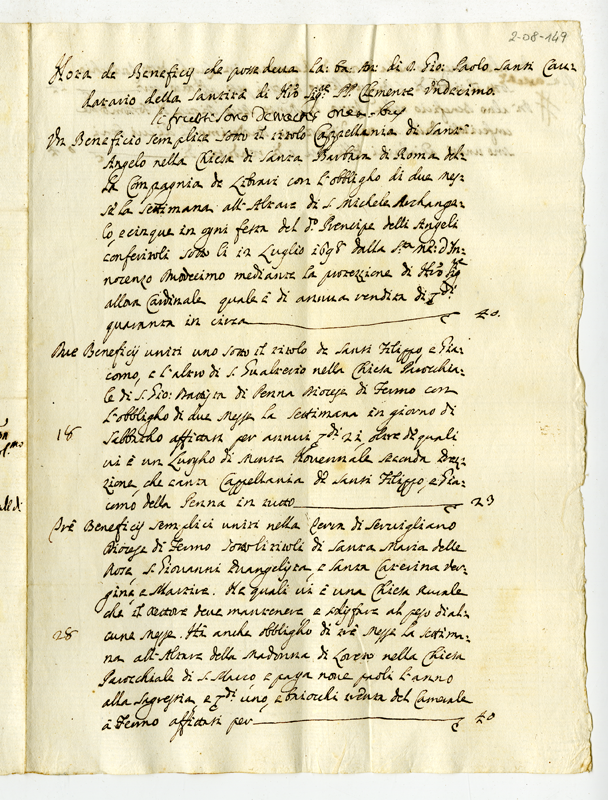 2-08-149
Nota de Beneficij che possedeva la: bo: me: di D. Gio: Paolo Santi Cau-
datario della Santità di Nro Sigre PP. Clemente Undecimo.
Un Beneficio semplice sotto il titolo Cappellania di Sant'
Angelo nella Chiesa di Santa Barbara di Roma del-
la Compagnia de Librari con l'obbligho di due mes-
se la settimana all'Altare di S. Michele Archange-
lo, e cinque in ogni festa del do Prencipe delli Angeli
conferitoli sotto li in Luglio 1698 dalla Sta me: d'In-
nocenzo Duodecimo mediante la protezzione di Nro Sigre
allora Cardinale quale è di annua rendita di
quaranta in circa 40
Due Beneficij uniti uno sotto il titolo de Santi Filippo, e Gia-
como, e l'altro di S. Gualterio nella Chiesa Parocchia-
le di S. Gio: Battista di Penna Diocese di Fermo con
l'obbligho di due Messe la Settimana in giorno di
18 Sabbatho affittati per annui 21 oltre de quali
vi è un Luogho di Monte Novennale seconda erez-
zione, che canta Cappellania de Santi Filippo, e Gia-
como della Penna in tutto 23
Tre Beneficij semplici uniti nella Terra di Servigliano
Diocese di Fermo sotto li titoli di Santa Maria delle
Rose, S. Giovanni Evangelista, e Santa Caterina Ver-
gine, e Martire. Ne quali vi è una Chiesa Rurale
che il Rettore deve mantenere e sodisfare al peso d'al-
28 cune Messe. Hà anche obbligho di trè Messe la settima-
na all'Altare della Madonna di Loreto nella Chiesa
Parocchiale di S. Marco e paga nove paoli l'anno
alla Sagrestia, e uno, e baiocchi trenta del Camerale
à Fermo affittati per 40